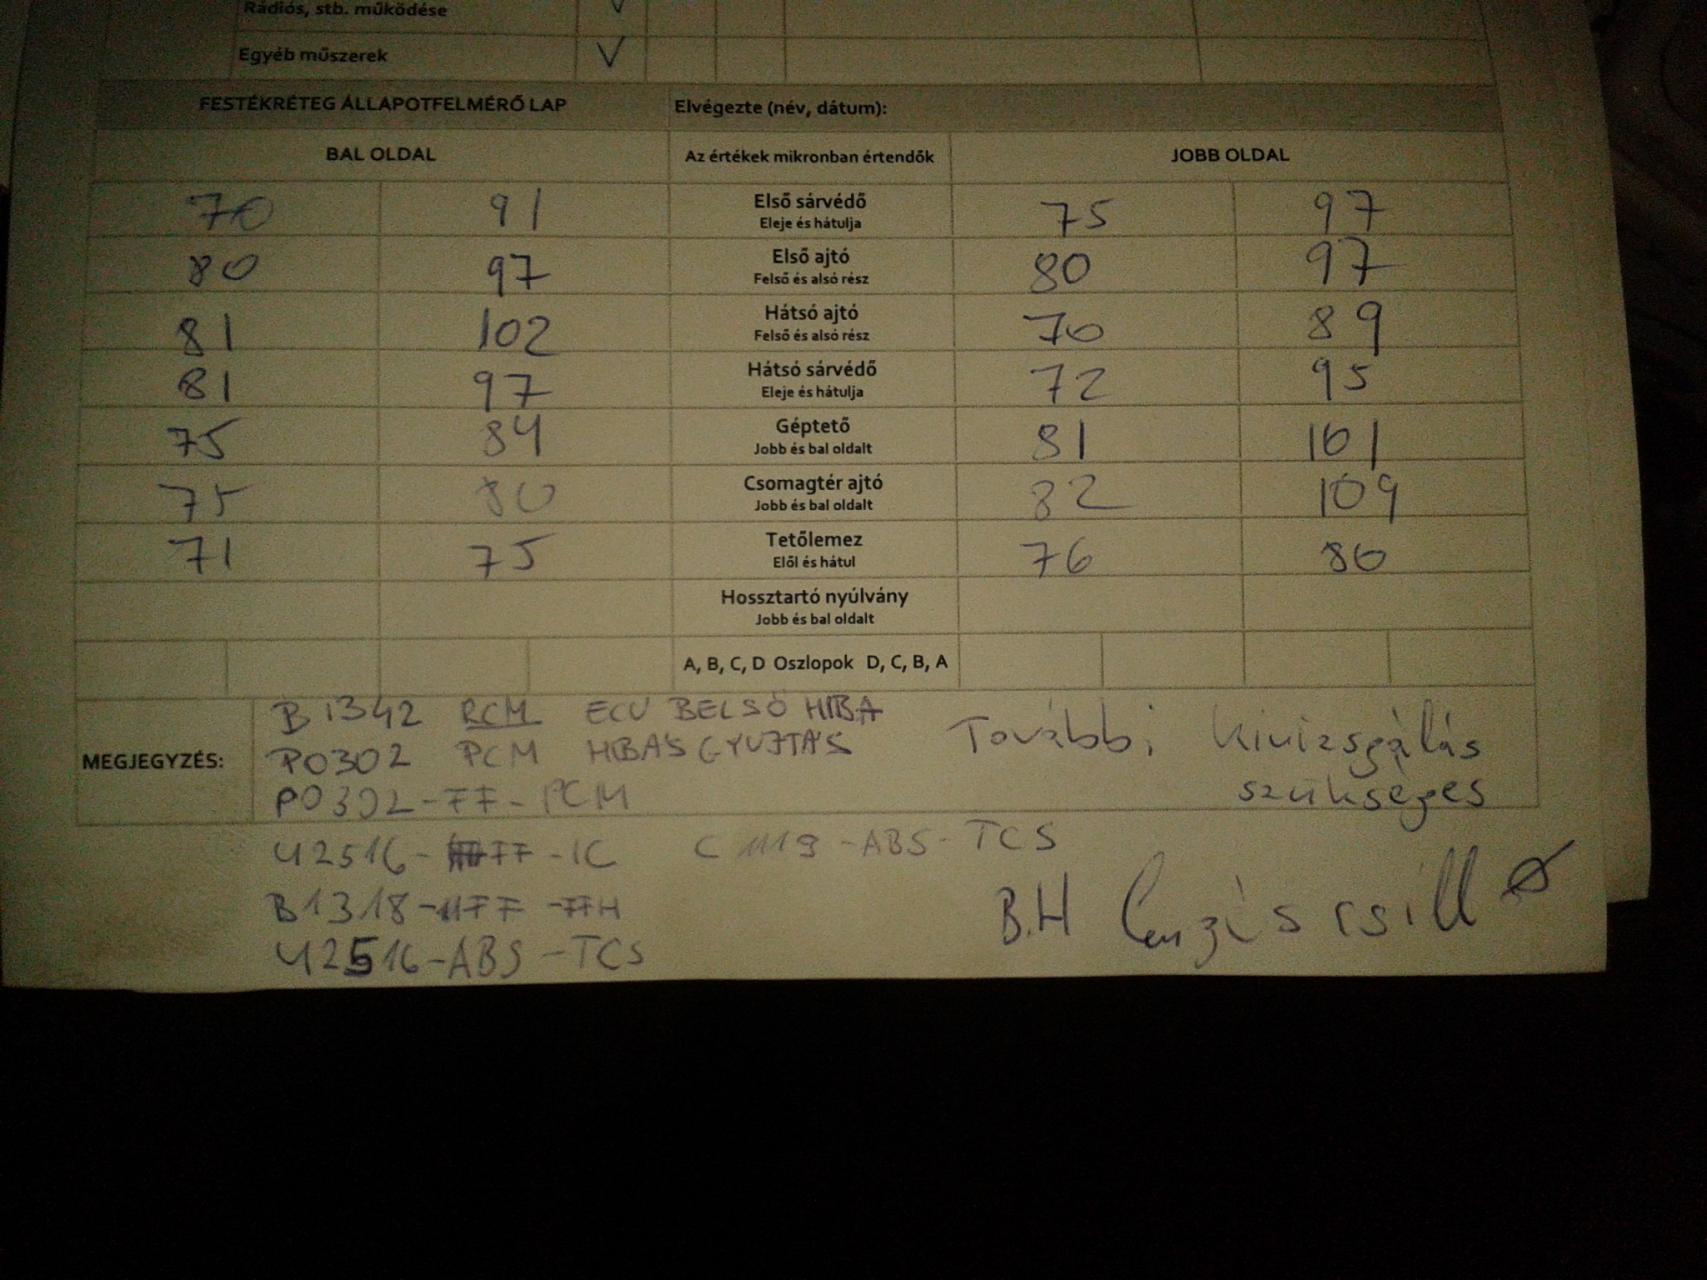 Rádiós, stb. működése V
Egyéb műszerek V
FESTÉKRÉTEG ÁLLAPOTFELMÉRŐ LAP Elvégezte (név, dátum):
BAL OLDAL Az értékek mikronban értendők JOBB OLDAL
70 91 Első sárvédő 75 97
Eleje és hátulja
80 97 Első ajtó 80 97
Felső és alsó rész
81 102 Hátsó ajtó 70 89
Felső és alsó rész
81 97 Hátsó sárvédő 72 95
Eleje és hátulja
75 84 Géptető 81 101
Jobb és bal oldalt
75 80 Csomagtér ajtó 82 109
Jobb és bal oldalt
71 75 Tetőlemez 76 80
Elől és hátul
Hossztartó nyúlvány
Jobb és bal oldalt
A, B, C, D Oszlopok D, C, B, A
MEGJEGYZÉS:
B1342 RCM ECU BELSŐ HIBA
P0302 PCM HIBÁS GYUJTÁS További kivizsgálás
P0302-FF-PCM szükséges
U2516-FF-IC C1119-ABS-TCS
B1318-
U2516-ABS-TCS
B.H csill